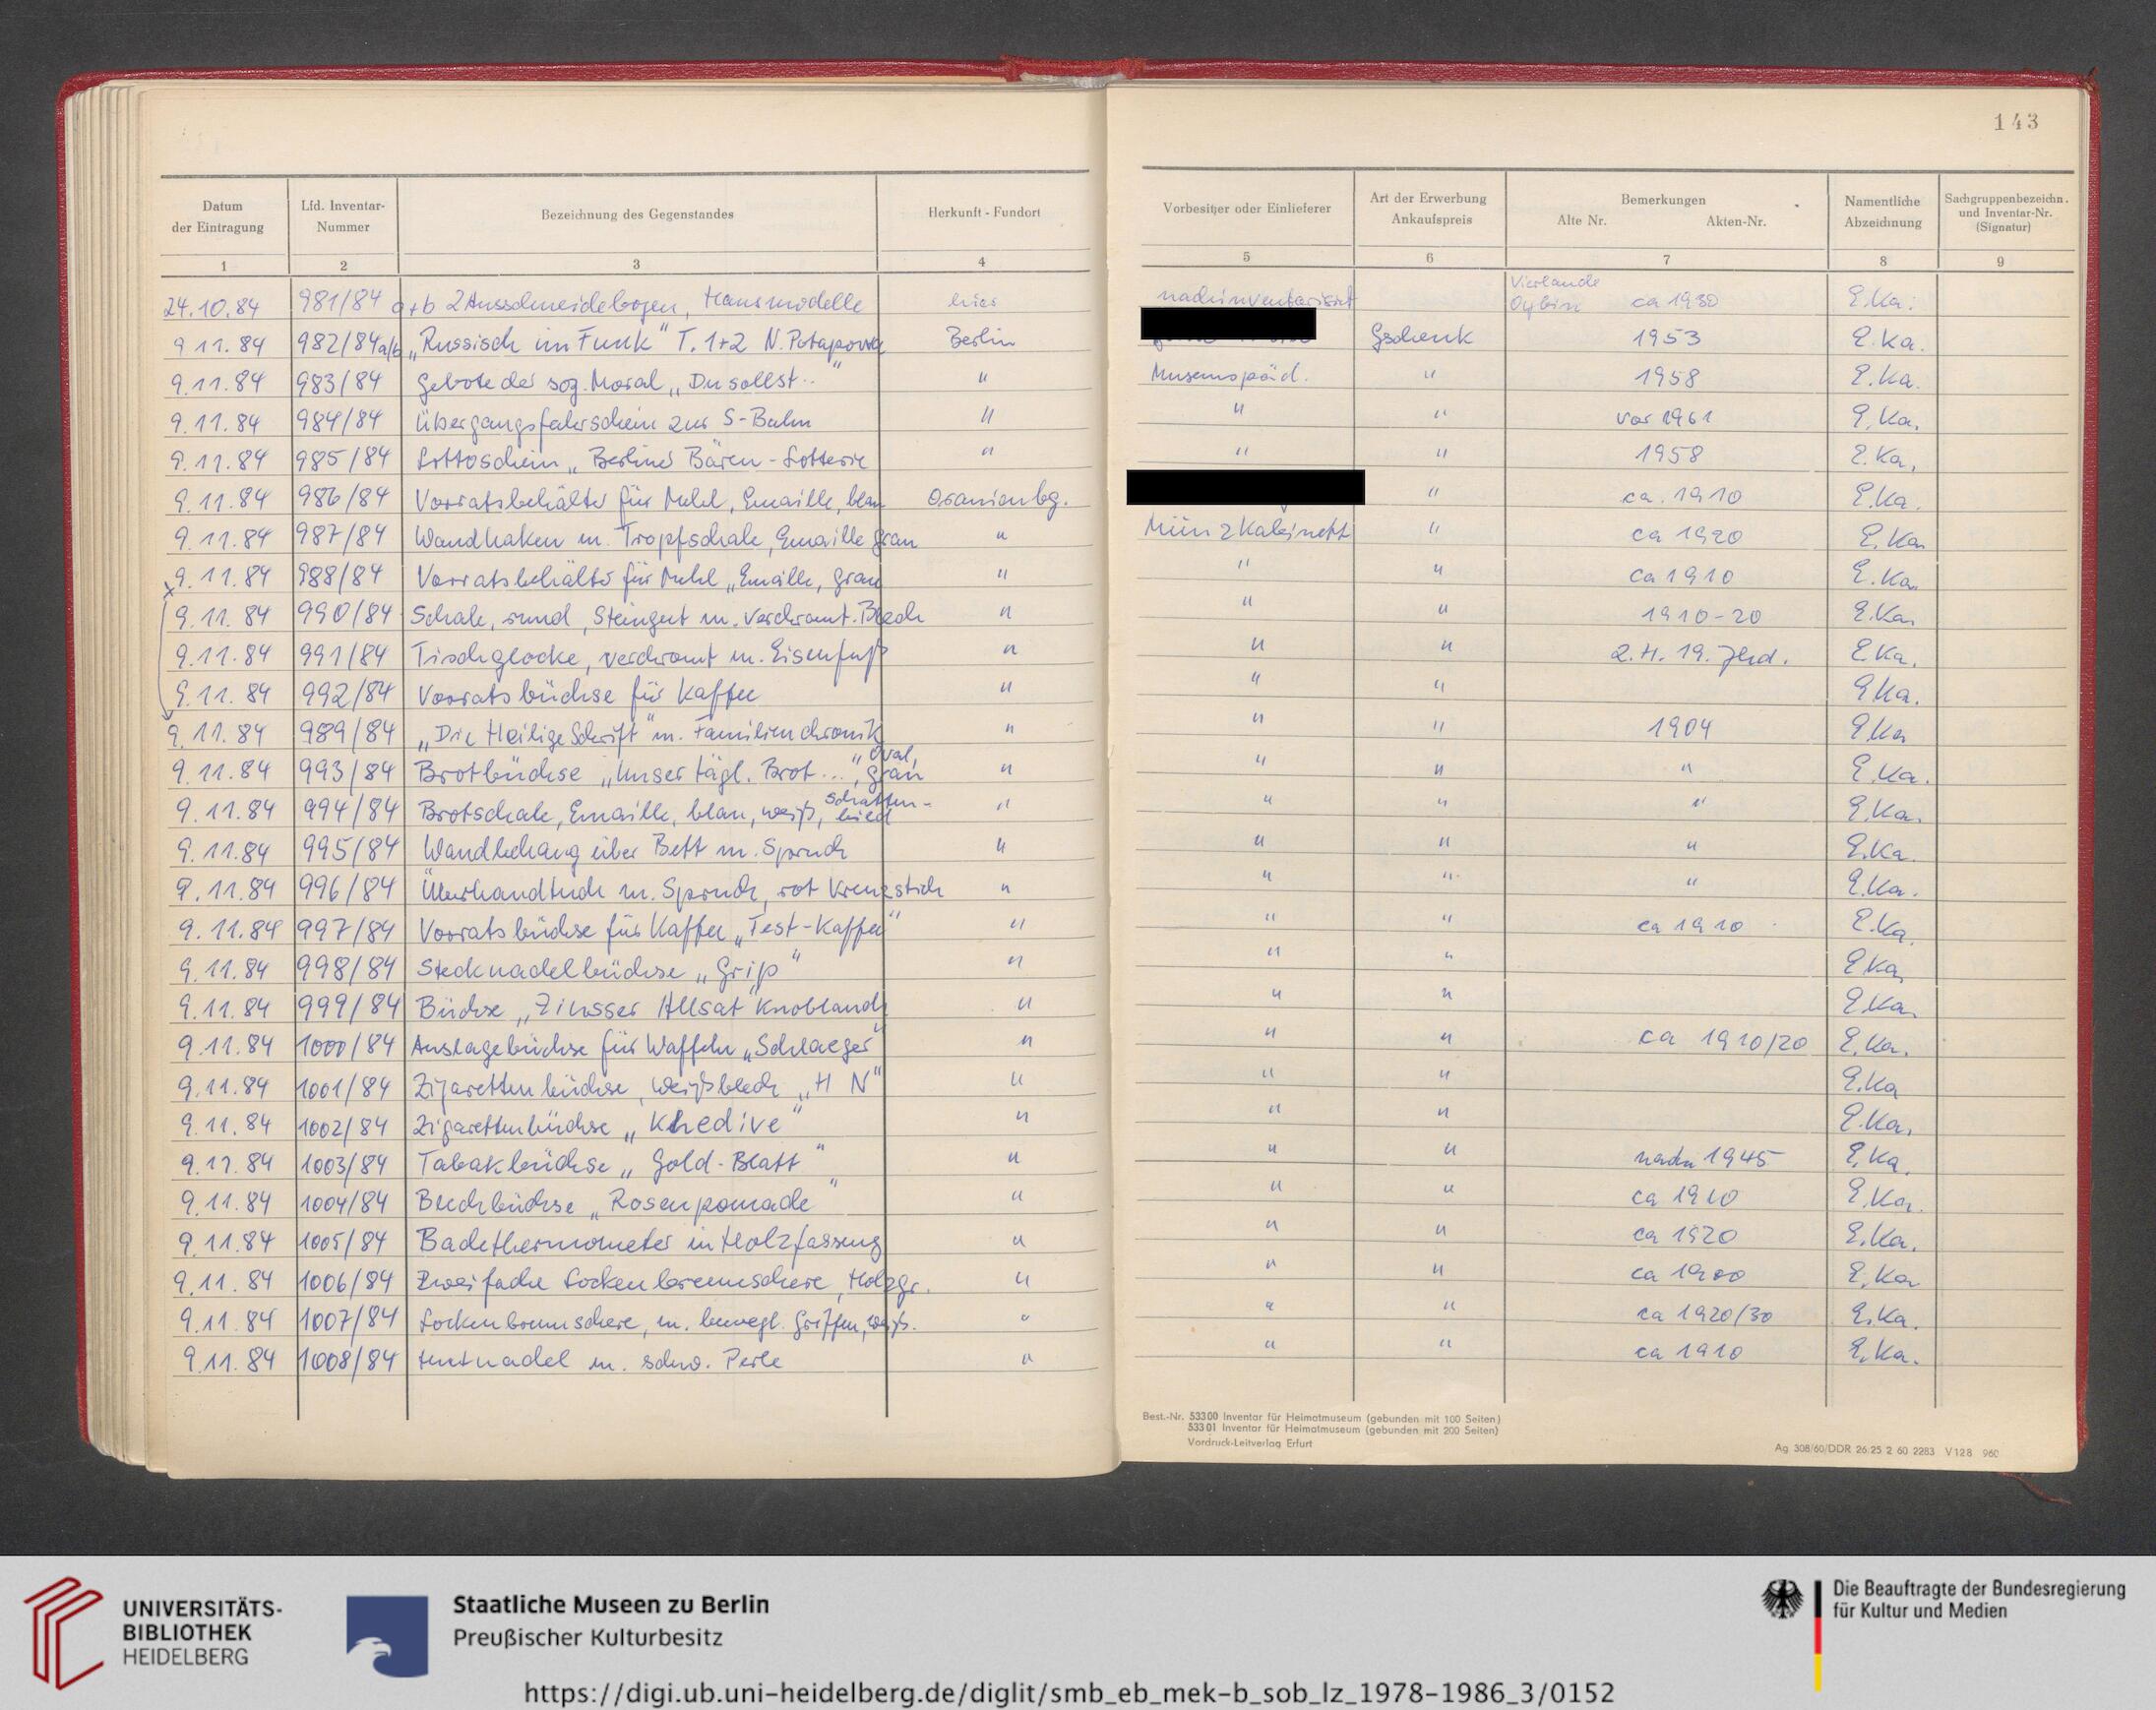 143
Datum der Eintragung | Lfd. Inventar-Nummer | Bezeichnung des Gegenstandes | Herkunft - Fundort | Vorbesitzer oder Einlieferer | Art der Erwerbung Ankaufspreis | Bemerkungen Alte Nr. Akten-Nr. | Namentliche Abzeichnung | Sachgruppenbezeichn. und Inventar-Nr. (Signatur)
1 | 2 | 3 | 4 | 5 | 6 | 7 | 8 | 9
24.10.84 | 981/84 | a+b 2 Ausschneidebogen, Hausmodelle | hier | nachinventarisiert | | Vierlande Oybin ca 1930 | E.Ka.
9.11.84 | 982/84 a/b | „Russisch im Funk“ T. 1+2 N. Potapowa | Berlin | | Gschenk | 1953 | E.Ka.
9.11.84 | 983/84 | Gebote der soz. Moral „Du sollst..“ | " | Museumspäd. | " | 1958 | E.Ka.
9.11.84 | 984/84 | Übergangsfahrschein zur S-Bahn | " | " | " | vor 1961 | E.Ka.
9.11.84 | 985/84 | Lottoschein „Berliner Bären-Lotterie | " | " | " | 1958 | E.Ka.
9.11.84 | 986/84 | Vorratsbehälter für Mehl, Emaille, blau | Oranienbg. | | " | ca. 1910 | E.Ka.
9.11.84 | 987/84 | Wandhaken m. Tropfschale, Emaille grau | " | Münzkabinett | " | ca 1920 | E.Ka
9.11.84 | 988/84 | Vorratsbehälter für Mehl, Emaille, grau | " | " | " | ca 1910 | E.Ka.
9.11.84 | 990/84 | Schale, rund, Steingut m. verchromt. Blech | " | " | " | 1910-20 | E.Ka.
9.11.84 | 991/84 | Tischglocke, verchromt m. Eisenfuß | " | " | " | 2.H. 19. Jhd. | E.Ka.
9.11.84 | 992/84 | Vorratsbüchse für Kaffee | " | " | " | | E.Ka.
9.11.84 | 989/84 | „Die Heilige Schrift“ m. Familienchronik | " | " | " | 1904 | E.Ka
9.11.84 | 993/84 | Brotbüchse „Unser tägl. Brot...“, oval, grau | " | " | " | " | E.Ka.
9.11.84 | 994/84 | Brotschale, Emaille, blau, weiß, Schattenbild | " | " | " | " | E.Ka.
9.11.84 | 995/84 | Wandbehang über Bett m. Spruch | " | " | " | " | E.Ka.
9.11.84 | 996/84 | Überhandtuch m. Spruch, rot Kreuzstich | " | " | " | " | E.Ka.
9.11.84 | 997/84 | Vorratsbüchse für Kaffee „Test-Kaffee“ | " | " | " | ca 1910 | E.Ka.
9.11.84 | 998/84 | Stecknadelbüchse „Grip“ | " | " | " | | E.Ka
9.11.84 | 999/84 | Büchse „Zinsser Allsat“ Knoblauch | " | " | " | | E.Ka.
9.11.84 | 1000/84 | Auslagebüchse für Waffeln „Schlaeger“ | " | " | " | ca 1910/20 | E.Ka.
9.11.84 | 1001/84 | Zigarettenbüchse, Weißblech „H N“ | " | " | " | | E.Ka
9.11.84 | 1002/84 | Zigarettenbüchse „Khedive“ | " | " | " | | E.Ka.
9.11.84 | 1003/84 | Tabakbüchse „Gold-Blatt“ | " | " | " | nach 1945 | E.Ka.
9.11.84 | 1004/84 | Blechbüchse „Rosenpomade“ | " | " | " | ca 1910 | E.Ka.
9.11.84 | 1005/84 | Badethermometer in Holzfassung | " | " | " | ca 1920 | E.Ka.
9.11.84 | 1006/84 | Zweifache Lockenbrennschere, Holzgr. | " | " | " | ca 1900 | E.Ka
9.11.84 | 1007/84 | Lockenbrennschere, m. bewegl. Griffen, weiß. | " | " | " | ca 1920/30 | E.Ka.
9.11.84 | 1008/84 | Hutnadel m. schw. Perle | " | " | " | ca 1910 | E.Ka.
Best.-Nr. 53300 Inventar für Heimatmuseum (gebunden mit 100 Seiten)
53301 Inventar für Heimatmuseum (gebunden mit 200 Seiten)
Vordruck-Leitverlag Erfurt
Ag 308/60/DDR 26 25 2 60 2283 V128 960
UNIVERSITÄTS-
BIBLIOTHEK
HEIDELBERG
Staatliche Museen zu Berlin
Preußischer Kulturbesitz
Die Beauftragte der Bundesregierung
für Kultur und Medien
https://digi.ub.uni-heidelberg.de/diglit/smb_eb_mek-b_sob_lz_1978-1986_3/0152